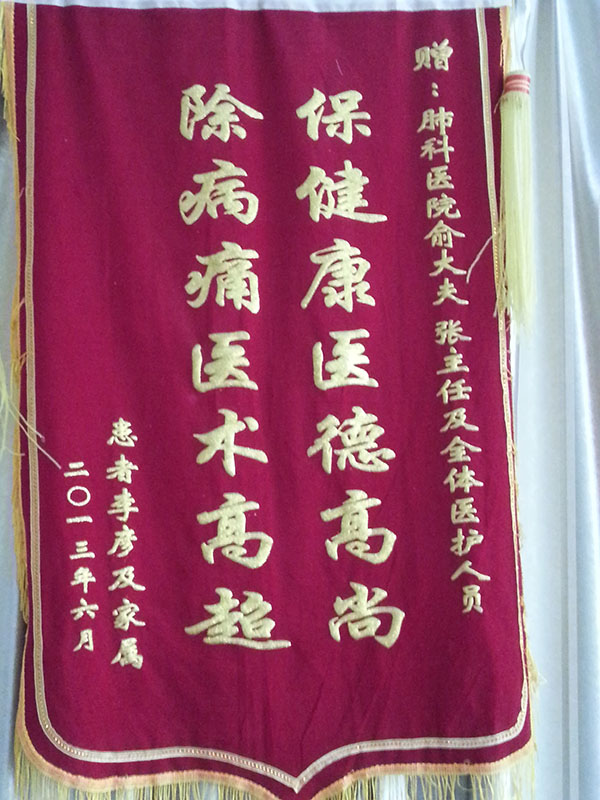 赠：肺科医院俞大夫 张主任及全体医护人员
保健康医德高尚
除病痛医术高超
患者李彦及家属
二〇一三年六月